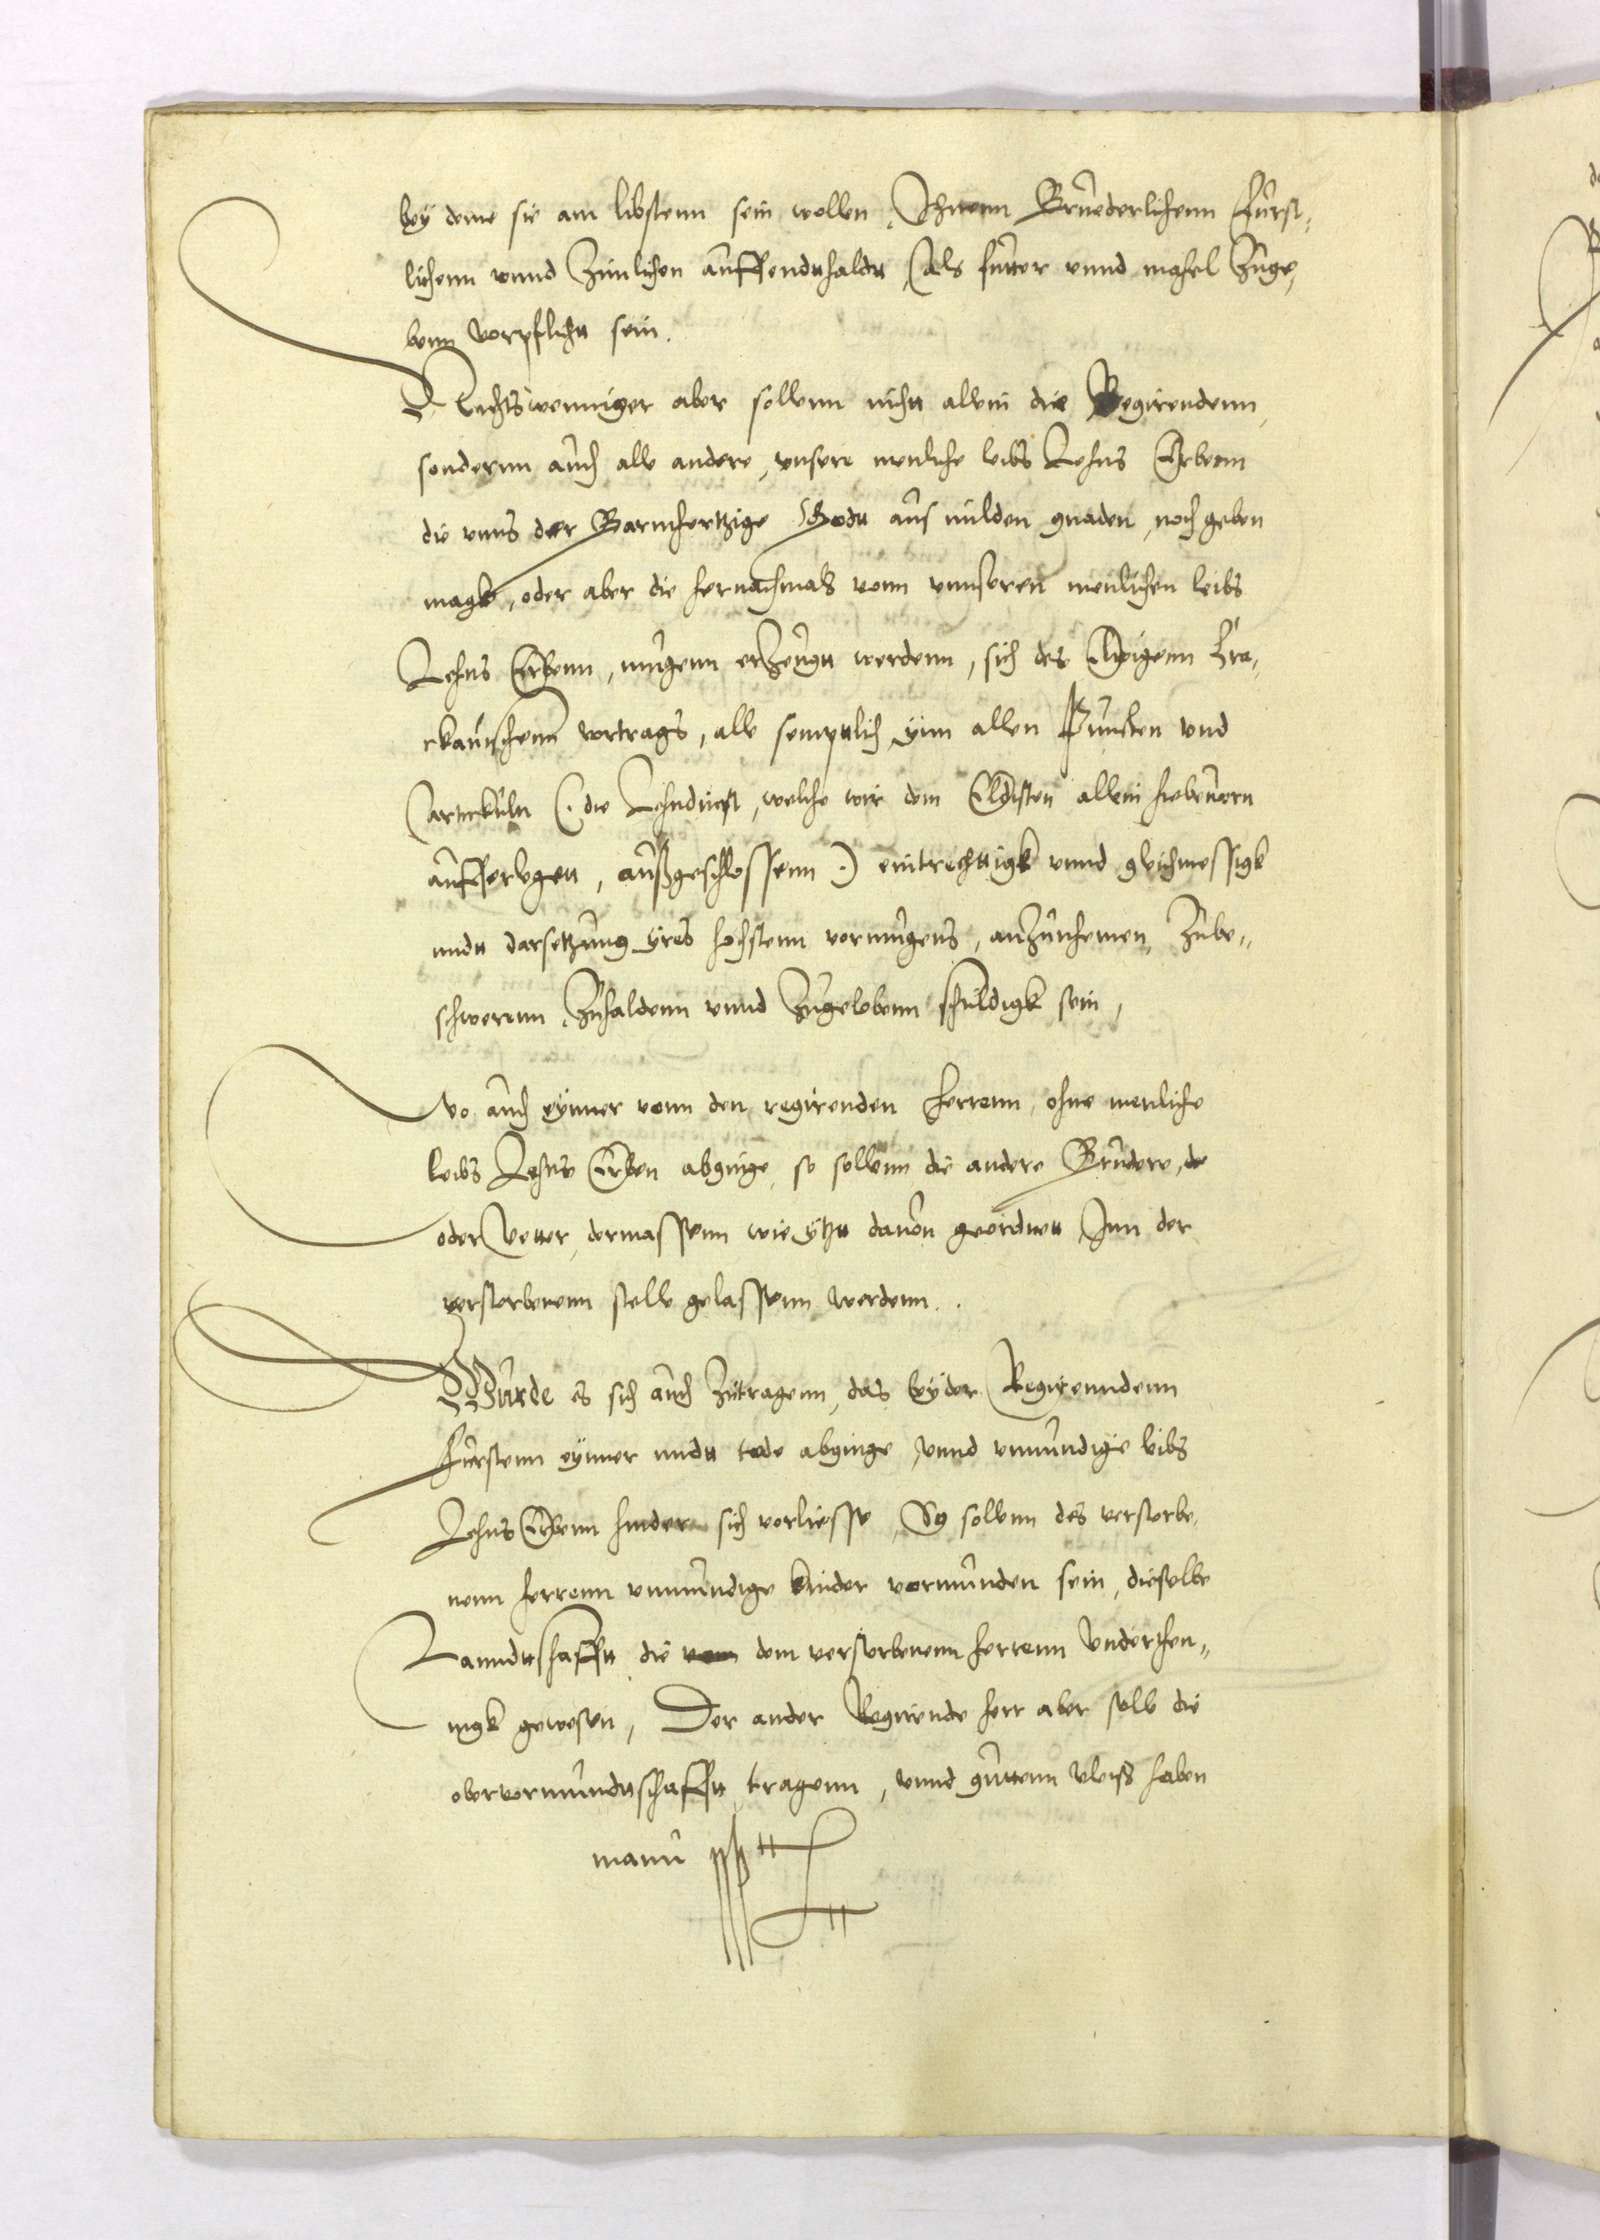 bey deme sie am libstenn sein wollen, Ihnenn Bruederlichenn Furst-
lichenn unnd Zimlichen auffendthaldt, (als futter unnd mahel Zuge,
benn vorpflicht sein.
Nichtsweniger aber sollenn nicht allein die Regirendenn,
sondernn auch alle andere, unsere menliche leibs Lehns Erbenn
die unns der Barmhertzige Godt aus milden gnaden, noch geben
magk, oder aber die hernachmals vonn unnseren menlichen leibs
Lehns Erbenn, mugenn erZeugt werdenn, sich des Ewigenn
vortrags, alle semptlich ynn allen Puncten und
artickuln (: die Lehndinst, welche wir dem Eldisten allein hiebeuorn
aufferlegett, außgeschlossenn :) eintrechtigk unnd gleichmessigk
midt darsetzung yres hochstenn vermugens, anZunhemen, Zube-
schwerenn, Zuhaldenn unnd Zugelobenn schuldigk sein,
Wo auch eynner vonn den regirenden herrenn, ohne menliche
leibs Lehns Erben abginge, so sollenn die andere Brudere,
oder Vetter, dermassenn wie ytzt dauon geordnet Inn der
verstorbenenn stelle gelassenn werdenn.
Wurde es sich auch Zutragenn, das beyder Regirenndenn
Furstenn eynner midt tode abginge, unnd unmundige leibs
Lehns Erbenn hinder sich verliesse, So sollenn des verstorbe,
nenn herrenn unmundige kinder vormunden sein, dieselbe
Lanndtschafft die dem verstorbenenn herrenn underthen-
nigk gewesen, Der ander Regirende herr aber solle die
obervormundtschafft tragenn, unnd guttenn vleiß haben
mann